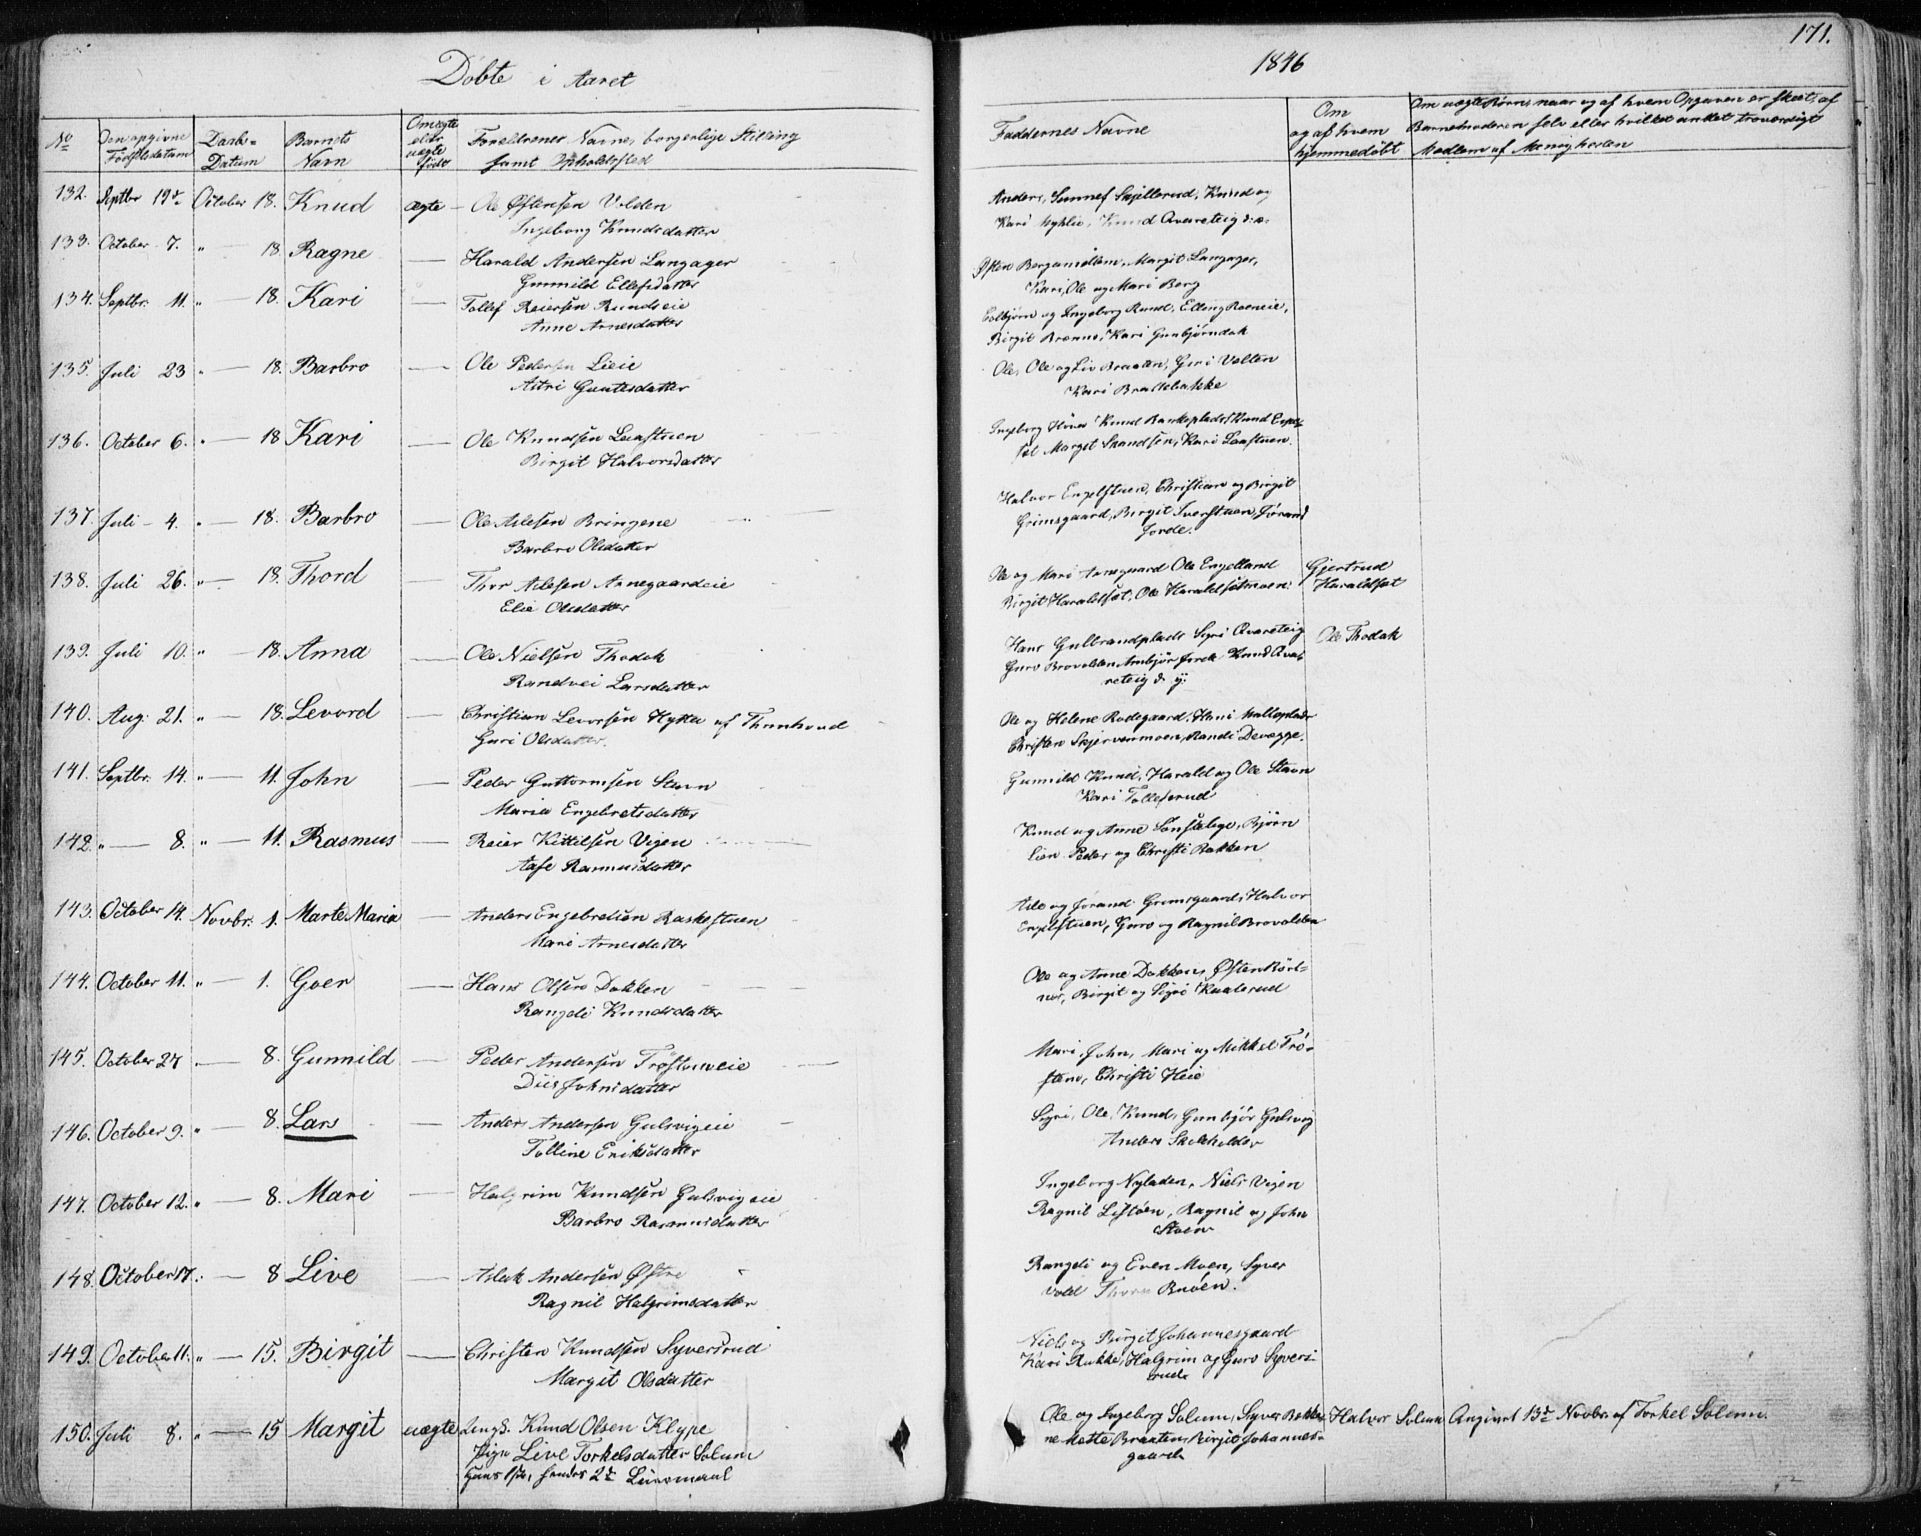 171.
Døbte i Aaret
1846
No
Den opgivne Fødselsdatum
Daabs-Datum
Barnets Navn
Om ægte eller uægte født
Forældrenes Navne, borgerlige Stilling samt Opholdssted
Faddernes Navne
Om og af hvem hjemmedøbt
Om uægte Børn, naar og af hvem Opgaven er skeet, af
Barnemoderen selv eller hvilket andet troværdigt
Medlem af Menigheden
132. Septbr 19de October 18. Knud ægte — Ole Østensen Velden
Ingeborg Knudsdatter
Anders, Sunnef Skjellerud, Knud og
Kari Myhlie, Knud Avereteig d: æ:
133. October 7. " — 18. Ragne — Harald Andersen Langager
Gunnild Ellefsdatter
Østen Bergamellem, Margit Langager,
Kari, Ole og Mari Berg
134. Septbr. 11. " — 18. Kari — Tollef Reiersen Rundseie
Anne Arnesdatter
Eolbjørn og Ingeborg Rund, Elling Roeneie,
Birgit Brenno, Kari Gunbjørndok
135. Juli 23 " — 18. Barbro — Ole Pedersen Lieie
Astri Guutesdatter
Ole, Ole og Liv Braaten, Guri Velten
Kari Brattebakke
136. October 6. " — 18 Kari — Ole Knudsen Leerstuen
Birgit Halvorsdatter
Ingeborg Høver Knud Bankeplads, Knud
Margit Skandsen, Kari Laastuen.
137. Juli — 4. " — 18. Barbro — Ole Aslesen Bringene
Barbro Olsdatter
Halvor Engelstuen, Christian og Birgit
Grimsgaard, Birgit Iverstuen, Jørand
Jorde.
138. Juli 26. " — 18. Thord — Thor Aslesen Arnegaardeie
Elie Olsdatter
Ole og Mari Arnegaard Ole Engelland
Birgit Haraldset, Ole Haraldsetmoen
Gjertrud
Haraldset
139. Juli 10. " — 18. Anna — Ole Nielsen Thodok
Randvei Larsdatter
Hans Gulbrandsplads Sigri Avereteig
Guro Brovolden Ambjør Jorde Knud Ave-
reteig d. y:
Ole Thodok
140. Aug. 21. " — 18. Levord — Christian Levorsen Hytta af Thunhovd
Guri Olsdatter.
Ole og Helene Rodegaard, Hani Halloplads
Christen Skjervenmoen, Randi Devegge.
141. Septbr. 14. " — 11. John — Peder Guttormsen Stavn
Maria Engebretsdatter
Gunnild Knud, Harald og Ole Stavn
Kari Tollefsrud
142. " — 8. " — 11. Rasmus — Reier Kittilsen Vigen
Aase Rasmusdatter
Knud og Anne Sønstelege, Bjørn
Lien Peder og Christi Bakken
143. October 14. Novbr. 1. Marte Maria — Anders Engebretsen Raskestuen
Mari Arnesdatter
Asle og Jørand Grimsgaard, Halvor
Engelstuen, Guro og Ragnil Brovolden
144. October 11. " — 1. Goer — Hans Olsen Dokken
Rangdi Knudsdatter
Ole og Anne Dokken, Østen Rørt-
nes, Birgit og Sigri Kaalsrud
145. October 27 — 8. Gunnild — Peder Andersen Trøstemeie
Diis Johnsdatter
Mari, John, Mari og Mikkel Trø-
stem, Christi Heie
146. October 9. " — 8. Lars — Anders Andersen Gulsvigeie
Tolline Eriksdatter
Sigri, Ole, Knud, Gunbjør Gulsvig
Anders Skolholder
147. October 12. " — 8. Mari — Halgrim Knudsen Gulsvigeie
Barbro Rasmusdatter
Ingeborg Nyladen, Niels Vigen
Ragnil Listøen, Ragnil og John
Støen
148. October 17. " — 8 Live — Aslak Andersen Østre
Ragnil Halgrimsdatter
Rangdi og Even Moen, Syver
Vold Thore Buøen.
149. October 11. " — 15. Birgit — Christen Knudsen Syversrud
Margit Olsdatter
Niels og Birgit Johannesgaard
Kari Rukke, Halgrim og Guro Syvers-
rud
150. Juli 8. " — 15 Margit uægte Ungk. Knud Olsen Klype
Pige Live Torkelsdatter Solum
Hans 1ste, hendes 2de Leiermaal
Ole og Ingeborg Solum, Syver Bakke-
ne Mette Braaten, Birgit Johannes-
gaard
Halvor Solum Angivet 13de Novbr. af Torkel Solum.